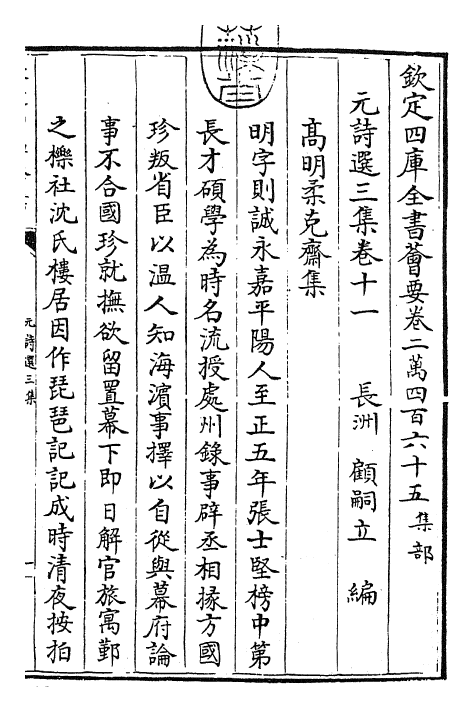 欽定四庫全書薈要卷二萬四百六十五 集部
元詩選三集卷十一 長洲 顧嗣立 編
高明柔克齋集
明字則誠永嘉平陽人至正五年張士堅榜中第
長才碩學為時名流授處州錄事辟丞相掾方國
珍叛省臣以温人知海濵事擇以自從與幕府論
事不合國珍就撫欲留置幕下即日解官旅寓鄞
之櫟社沈氏樓居因作琵琶記記成時清夜按拍
元詩選三集
一